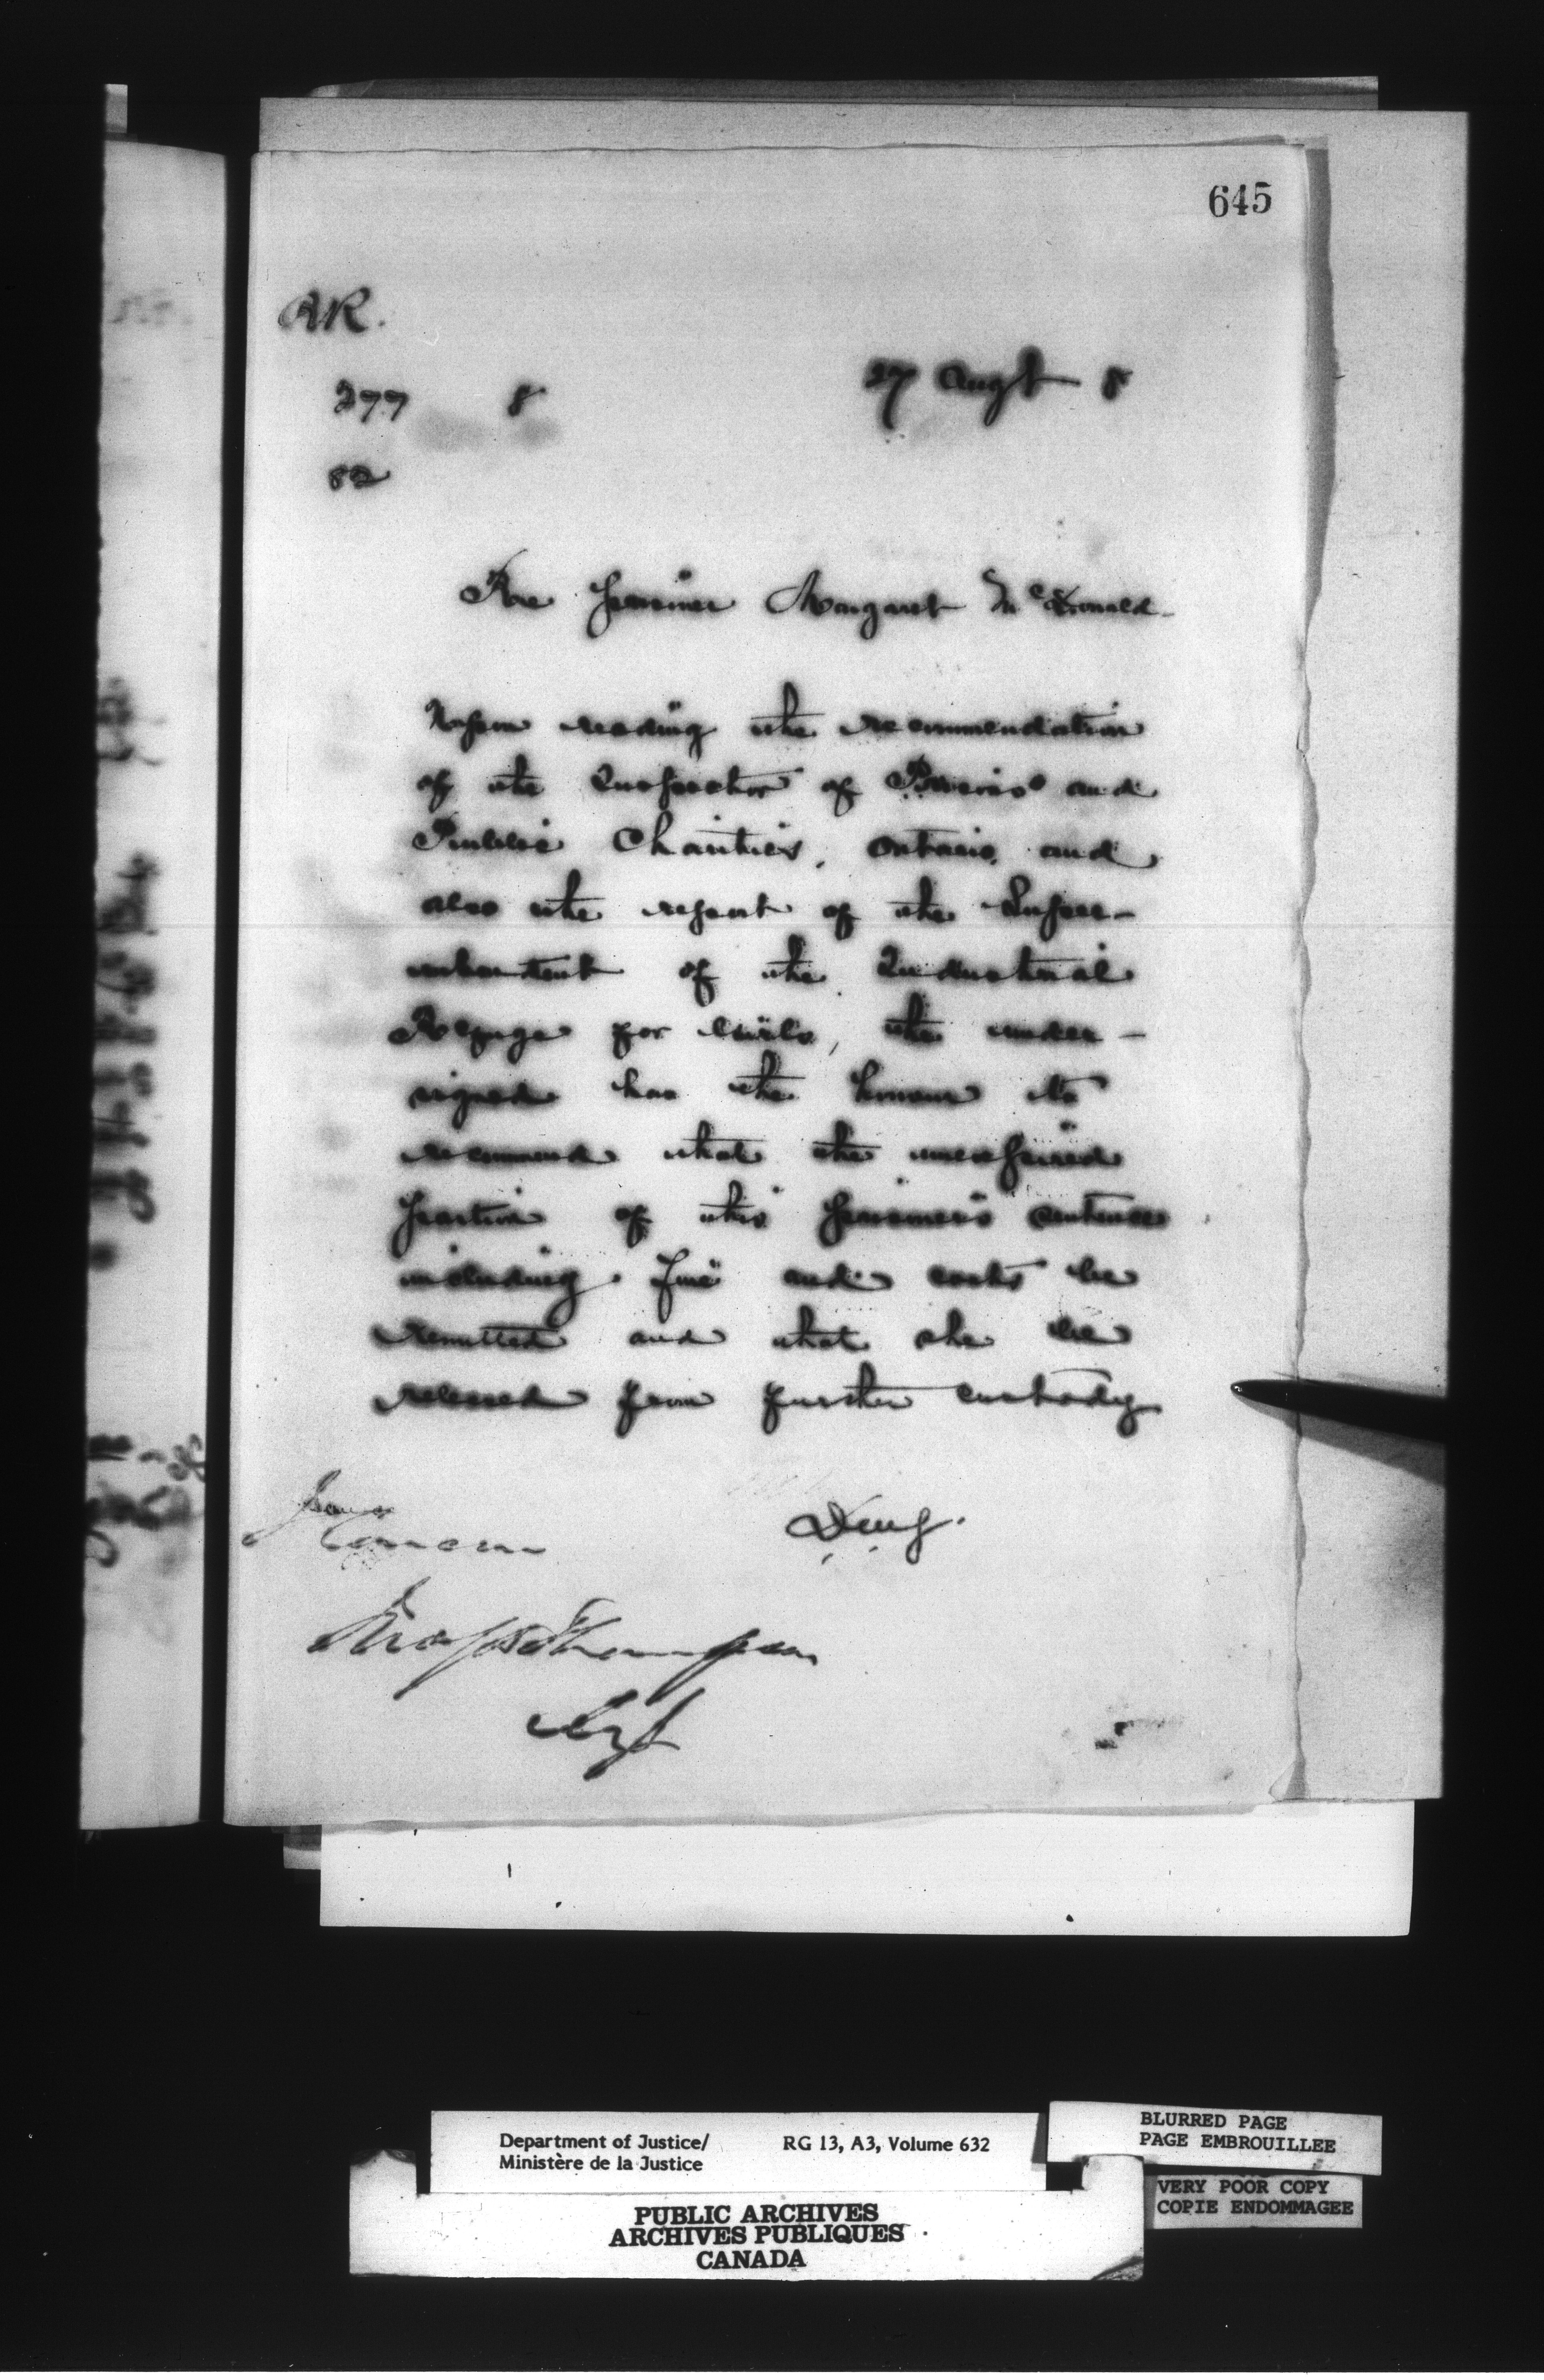 645
AR.
277 8 27 Augt 8
82
Re prisoner Margaret McDonald
Upon reading the recommendation
of the Inspector of Prisons and
Public Charities, Ontario, and
also the report of the Super-
intendent of the Industrial
Refuge for Girls, the under-
signed has the honour to
recommend that the unexpired
portion of this prisoner's sentence
including fine and costs be
remitted and that she be
released from further custody
Thompson
Department of Justice/ RG 13, A3, Volume 632
Ministère de la Justice
BLURRED PAGE
PAGE EMBROUILLEE
VERY POOR COPY
COPIE ENDOMMAGEE
PUBLIC ARCHIVES
ARCHIVES PUBLIQUES
CANADA